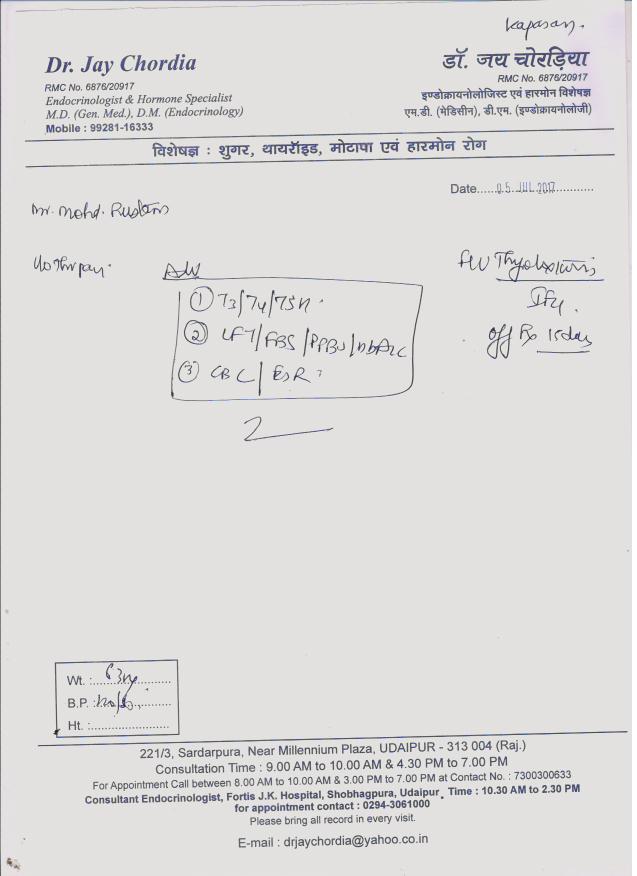 Kapasan.
Dr. Jay Chordia
RMC No. 6876/20917
Endocrinologist & Hormone Specialist
M.D. (Gen. Med.), D.M. (Endocrinology)
Mobile : 99281-16333
डॉ. जय चोरड़िया
RMC No. 6876/20917
इण्डोक्रायनोलोजिस्ट एवं हारमोन विशेषज्ञ
एम.डी. (मेडिसीन), डी.एम. (इण्डोक्रायनोलोजी)
विशेषज्ञ : शुगर, थायरॉइड, मोटापा एवं हारमोन रोग
Date.....05 JUL 2017............
Mr. Mohd. Rustam
Adv
① T3/T4/TSH
② LFT/FBS/PPBS/HbA1c
③ CBC/ESR
off Rx 15 days
Wt. :
B.P. :
Ht. :........................
221/3, Sardarpura, Near Millennium Plaza, UDAIPUR - 313 004 (Raj.)
Consultation Time : 9.00 AM to 10.00 AM & 4.30 PM to 7.00 PM
For Appointment Call between 8.00 AM to 10.00 AM & 3.00 PM to 7.00 PM at Contact No. : 7300300633
Consultant Endocrinologist, Fortis J.K. Hospital, Shobhagpura, Udaipur, Time : 10.30 AM to 2.30 PM
for appointment contact : 0294-3061000
Please bring all record in every visit.
E-mail : drjaychordia@yahoo.co.in